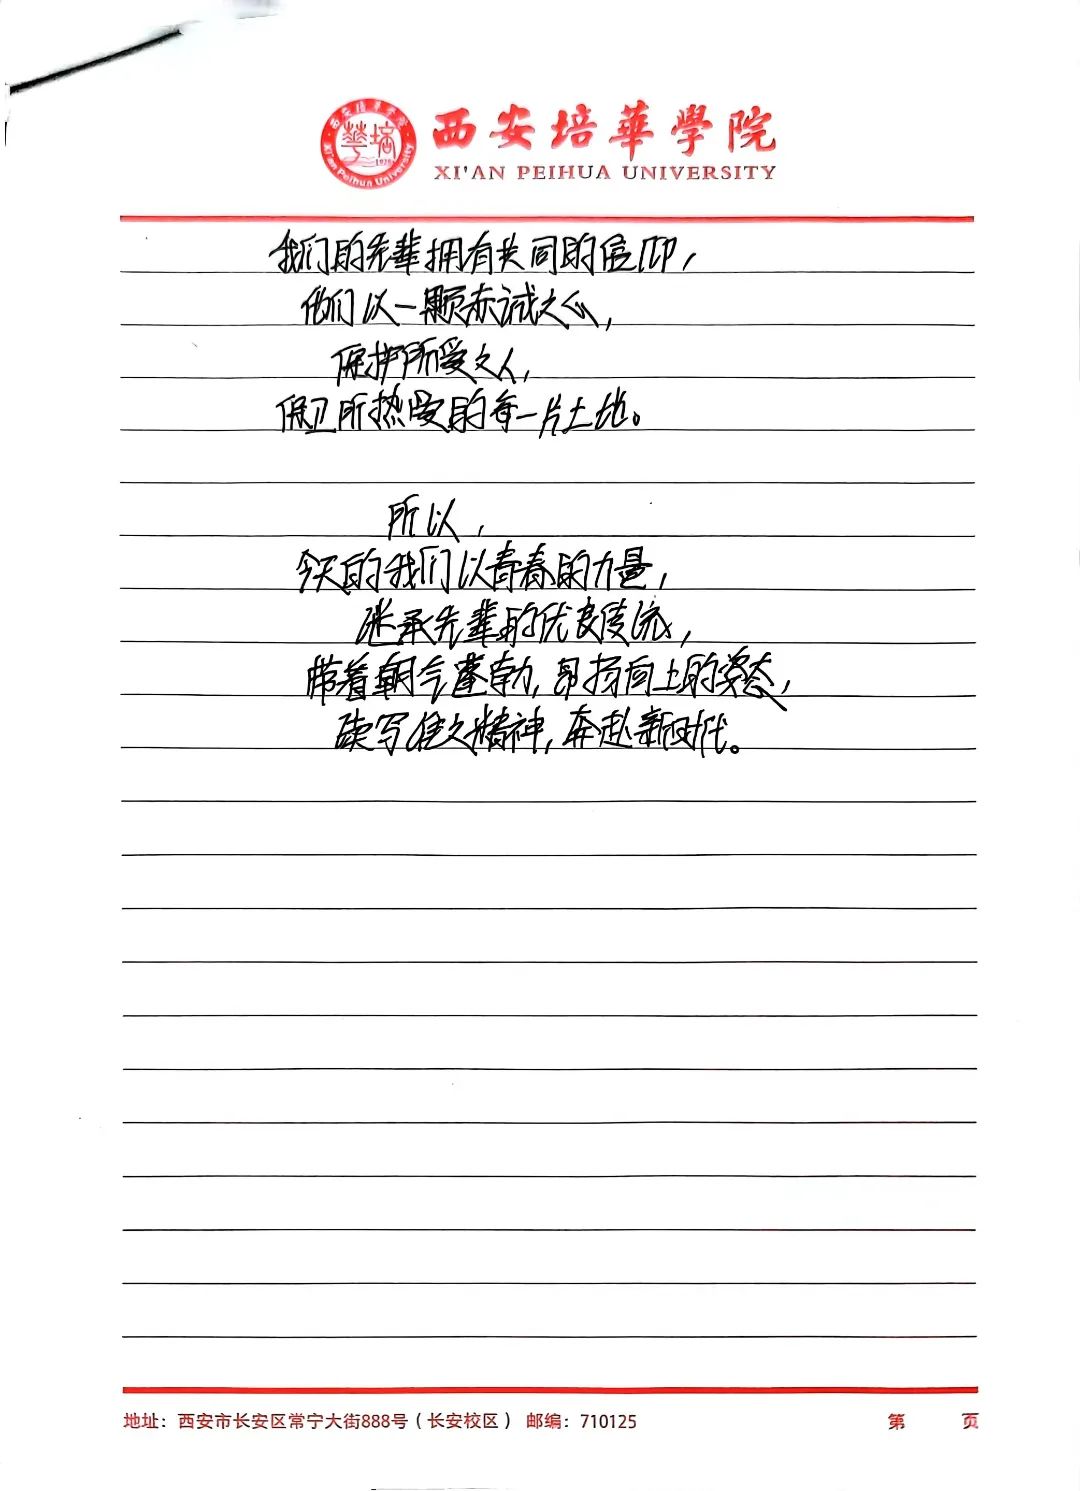 西安培華學院
XI'AN PEIHUA UNIVERSITY
我们的先辈拥有共同的信仰，
他们以一颗赤诚之心，
保护所爱之人，
保卫所热爱的每一片土地。
所以，
今天的我们以青春的力量，
继承先辈的优良传统，
带着朝气蓬勃，昂扬向上的姿态，
续写雷锋精神，奔赴新时代。
地址：西安市长安区常宁大街888号（长安校区） 邮编：710125
第 页